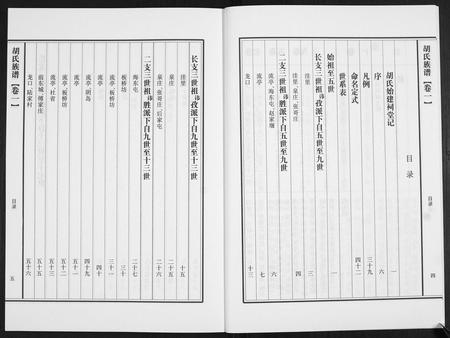 胡氏族谱【卷一】
目录
四
目录
胡氏始建祠堂记 一
序 六
凡例 三十九
命名定式 四十二
世系表
始祖至五世 一
长支三世祖讳孜派下自五世至九世
洼里 三
洼里、泉庄、张哥庄 四
二支三世祖讳胜派下自五世至九世
流亭、海东屯、赵家堰 六
流亭 七
龙口 十三
长支三世祖讳孜派下自九世至十三世
洼里 十五
泉庄 二十五
泉庄、张哥庄、后家屯 二十六
二支三世祖讳胜派下自九世至十三世
海东屯 二十七
板桥坊 三十
流亭、板桥坊 三十一
流亭、胡岛 四十九
流亭 五十
流亭、板桥坊 五十一
流亭、社省 五十二
前东城、傅家庄 五十五
龙口、陆家村 五十六
胡氏族谱【卷一】
目录
五